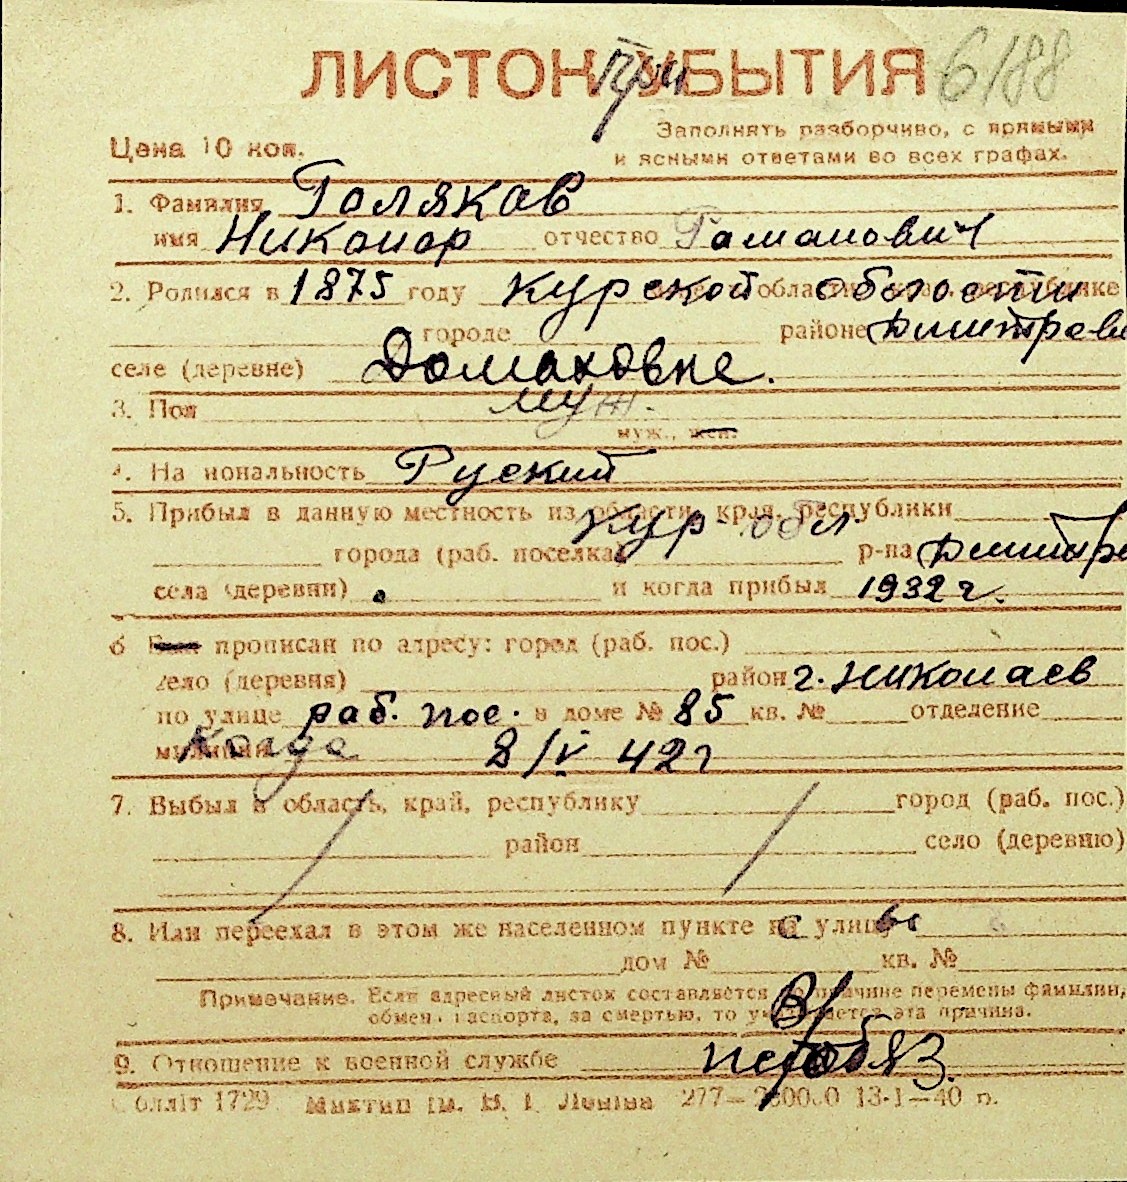 ЛИСТОК УБЫТИЯ 6188
При
Цена 10 коп.
Заполнять разборчиво, с прямыми
и ясными ответами во всех графах.
1. Фамилия Голяков
имя Никонор отчество Романович
2. Родился в 1875 году Курской области
городе районе Дмитров
селе (деревне) Домаховке.
3. Пол муж.
муж., жен.
4. Национальность Руский
5. Прибыл в данную местность из области, края, республики Кур-обл.
города (раб. поселка) р-на Дмитр
села (деревни) и когда прибыл 1932 г.
6 Был прописан по адресу: город (раб. пос.)
село (деревня) район г. Николаев
по улице раб. пос. в доме № 85 кв. № отделение
милиции Когда 2/IV 42 г
7. Выбыл в область, край, республику город (раб. пос.)
район село (деревню)
8. Или переехал в этом же населенном пункте на улицу
дом № кв. №
Примечание. Если адресный листок составляется по причине перемены фамилии,
обмена паспорта, за смертью, то указывается эта причина.
9. Отношение к военной службе В/необяз.
Облліт 1729. Миктип ім. В. І. Леніна 13-1—40 р.